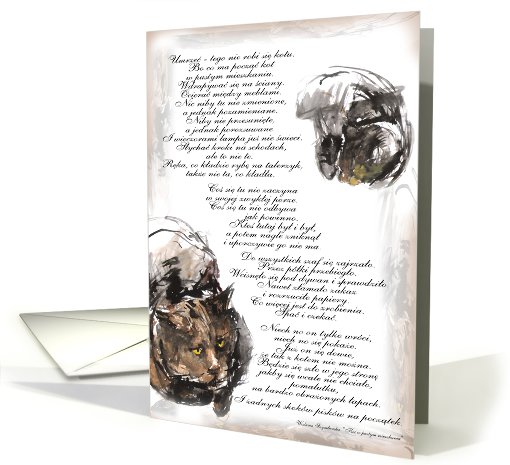 Umrzeć - tego nie robi się kotu.
Bo co ma począć kot
w pustym mieszkaniu.
Wdrapywać się na ściany.
Ocierać między meblami.
Nic niby tu nie zmienione,
a jednak pozamieniane.
Niby nie przesunięte,
a jednak porozsuwane.
I wieczorami lampa już nie świeci.
Słychać kroki na schodach,
ale to nie te.
Ręka, co kładzie rybę na talerzyk,
także nie ta, co kładła.
Coś się tu nie zaczyna
w swojej zwykłej porze.
Coś się tu nie odbywa
jak powinno.
Ktoś tutaj był i był,
a potem nagle zniknął
i uporczywie go nie ma
Do wszystkich szaf się zajrzało.
Przez półki przebiegło.
Wcisnęło się pod dywan i sprawdziło.
Nawet złamało zakaz
i rozrzuciło papiery.
Co więcej jest do zrobienia.
Spać i czekać.
Niech no on tylko wróci,
niech no się pokaże.
Już on się dowie,
że tak z kotem nie można.
Będzie się szło w jego stronę
jakby się wcale nie chciało,
pomalutku,
na bardzo obrażonych łapach.
I żadnych skoków pisków na początek.
Wisława Szymborska "Kot w pustym mieszkaniu"